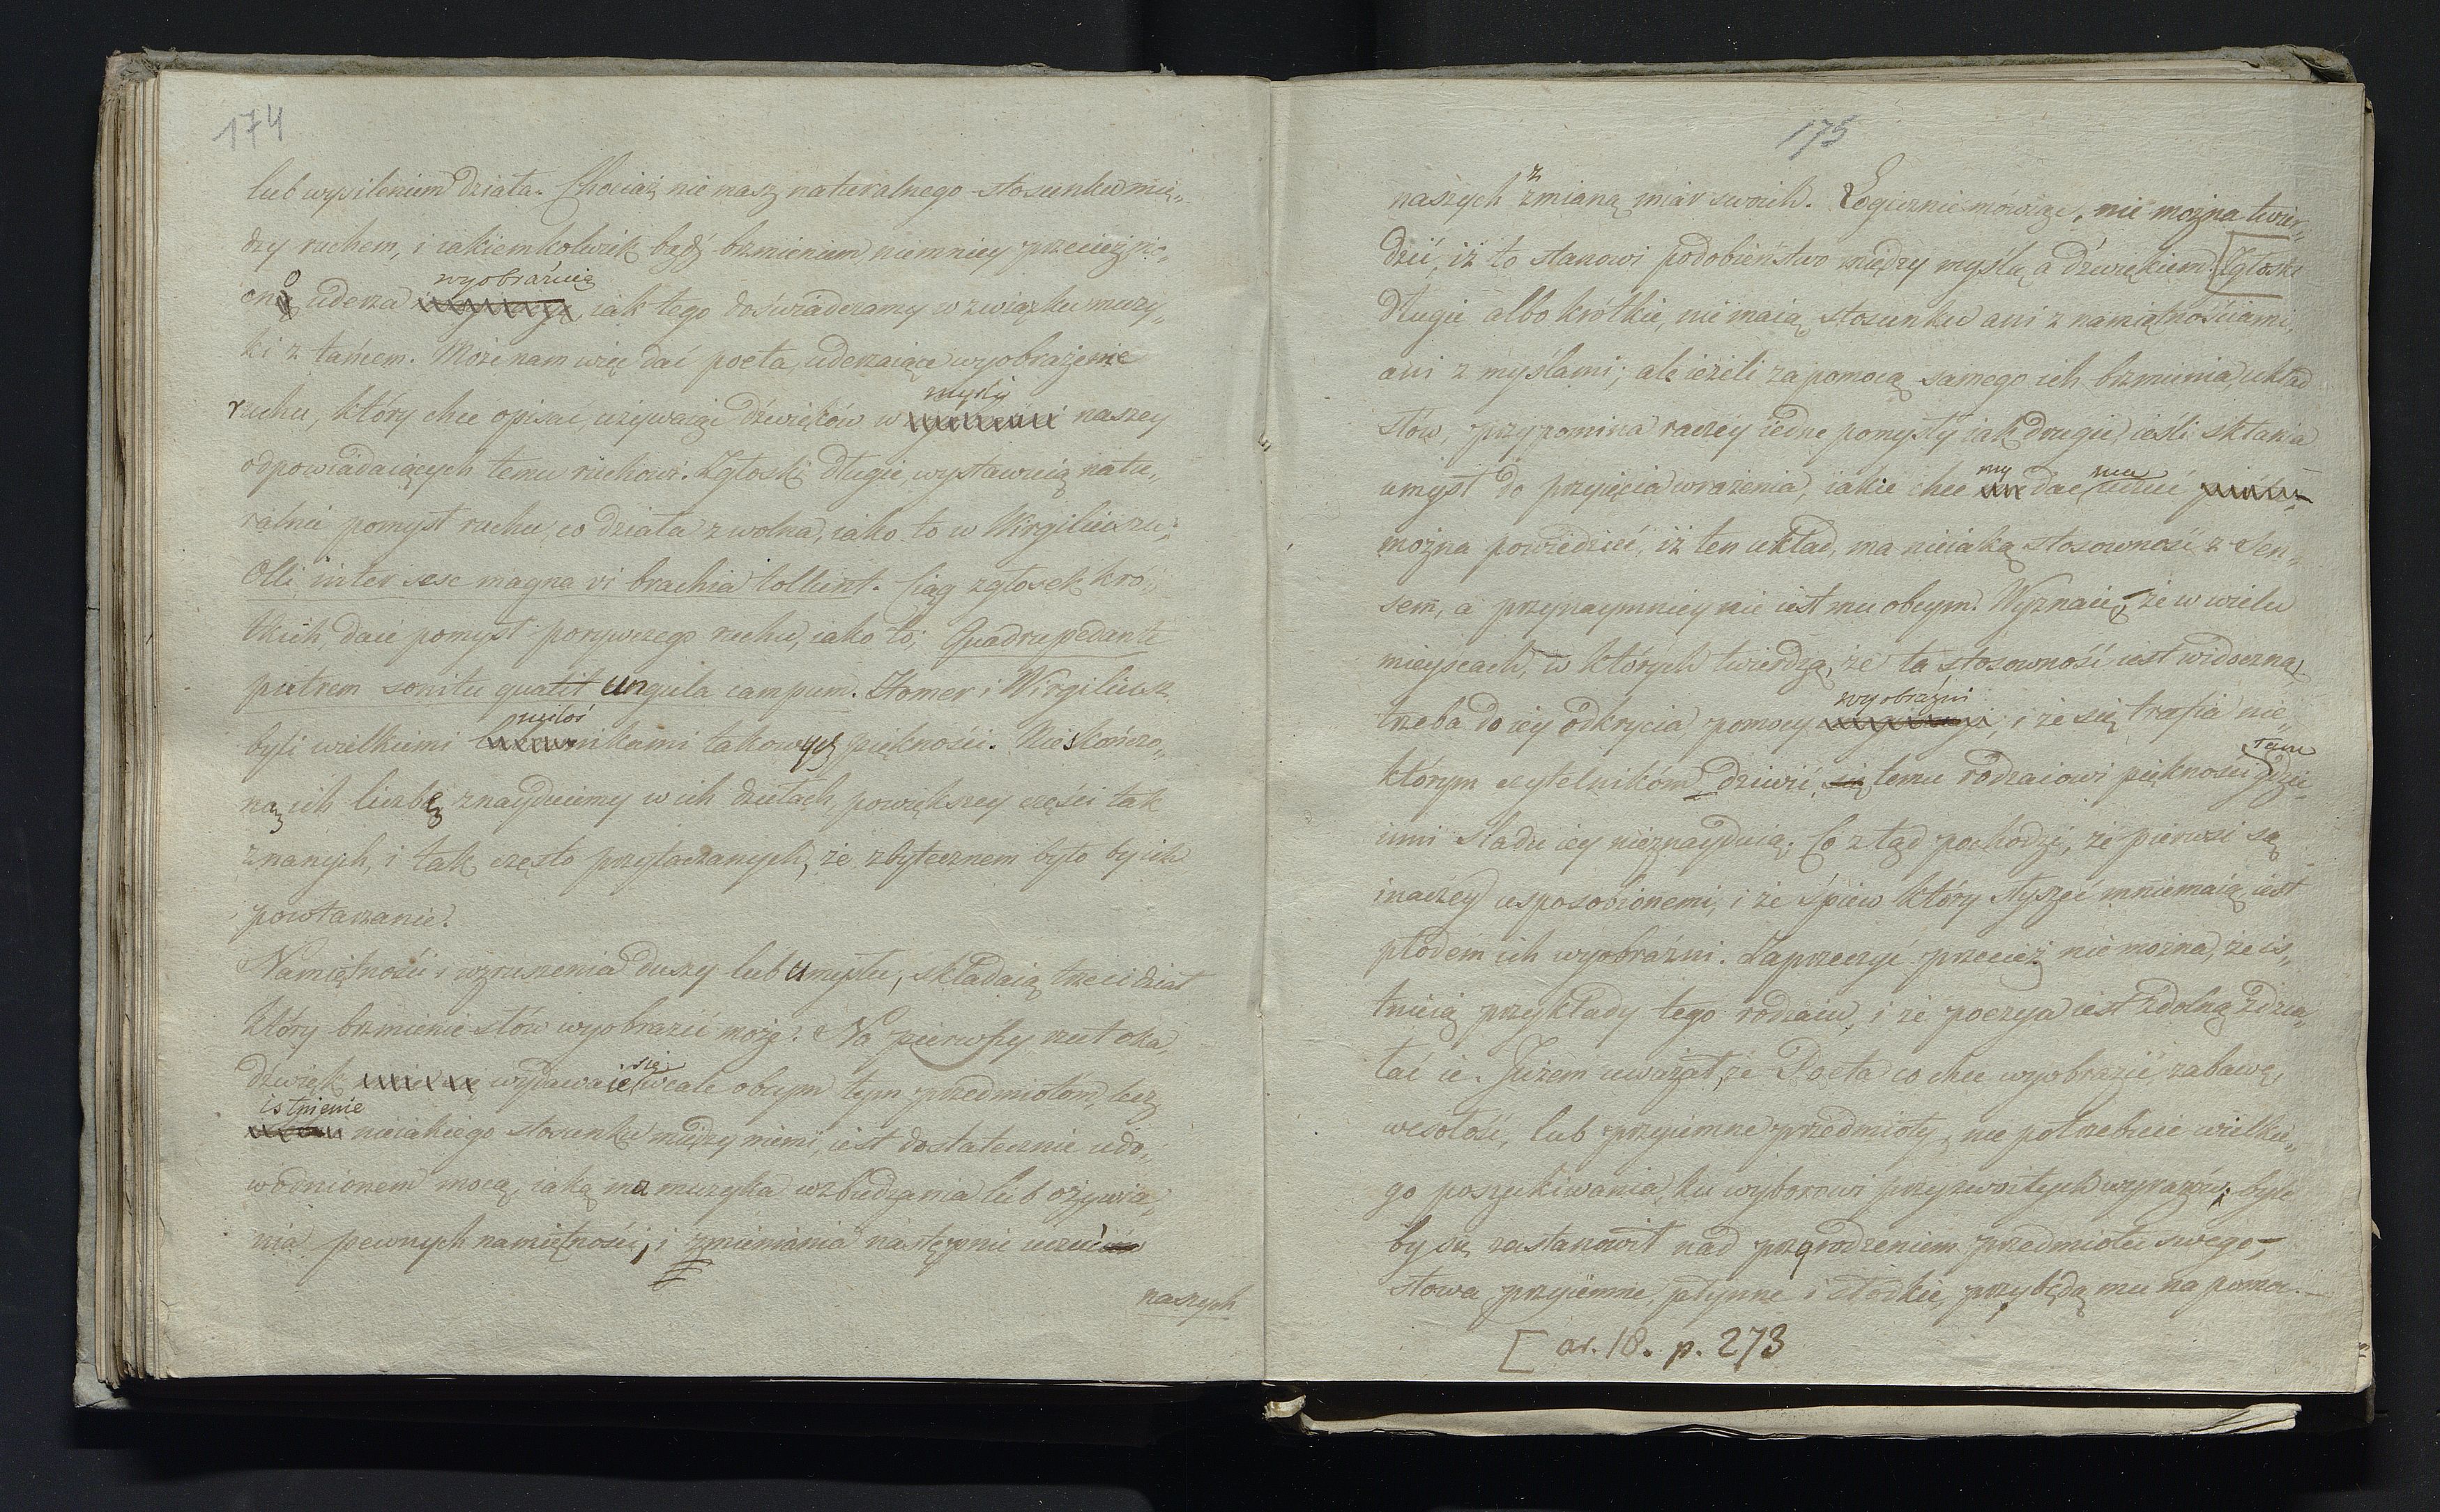 174
lub wysileniem działa. Chociaż nie masz naturalnego stosunku mię„
dzy ruchem, i iakiemkolwiek bądź brzmieniem, niemniey przecież pi„
ono uderza wyobraźnią iak tego doświadczamy w związku muzy„
ki z tańcem. Może nam więc dać poeta, uderzaiące wyobrażenie
ruchu, który chce opisać, używaiąc dźwięków w myśli naszey
odpowiadaiących temu ruchowi. Zgłoski długie, wystawuią natu„
ralnie pomysł ruchu, co działa z wolna, iako to w Wirgiliuszu:
Olli inter sese magna vi brachia tollunt. Ciąg zgłosek kró„
tkich, daie pomysł porywczego ruchu, iako to; Quadrupedante
putrem sonitu quatit ungula campum. Homer i Wirgiliusz
byli wielkiemi miłośnikami takowych piękności. Nieskończo„
ną ich liczbę znayduiemy w ich dziełach, powiększey części tak
znanych, i tak często przytaczanych, że zbytecznem było by ich
powtarzanie.
Namiętności i wzruszenia duszy lub umysłu, składaią trzeci dział
który brzmienie słów wyobrazić może. Na pierwszy rzut oka,
dźwięk wydawaie się wcale obcym tym przedmiotom, lecz
istnienie nieiakiego stosunku między niemi, iest dostatecznie udo„
wodnionem mocą, iaką ma muzyka wzbudzania lub ożywia„
nia pewnych namiętności, i zmieniania następnie uczuć
naszych
175
naszych z zmianą miar swoich. Logicznie mówiąc, nie można twier„
dzić, iż to stanowi podobieństwo między myślą, a dźwiękiem. [Zgłoski
długie albo krótkie, nie maią stosunku ani z namiętnościami,
ani z myślami; ale ieżeli za pomocą samego ich brzmienia, układ
słów, przypomina raczey iedne pomysły iak drugie, ieśli skłania
umysł do przyięcia wrażenia, iakie chce my dać mu
można powiedzieć, iż ten układ, ma nieiaką stosowność z Sen„
sem, a przynaymniey nie iest mu obcym. Wyznaię, że w wielu
mieyscach, w których twierdzą, że ta stosowność iest widoczną,
trzeba do iey odkrycia pomocy wyobraźni, i że się trafia nie„
którym czytelnikóm dziwić się temu rodzaiowi piękności tam gdzie
inni śladu iey nieznayduią. Co ztąd pochodzi, że pierwsi są
inaczey usposobionemi, i że śpiew który słyszeć mniemaią, iest
płodem ich wyobraźni. Zaprzeczyć przecież nie można, że is„
tnieią przykłady tego rodzaiu, i że poezya iest zdolną zdzia„
łać ie. Jużem uważał, że Poeta co chce wyobrazić, zabawę,
wesołość, lub przyiemne przedmioty, nie potrzebuie wielkie„
go poszukiwania, ku wyborowi przyzwoitych wyrazów; byle
by się zastanowił nad przyrodzeniem przedmiotu swego,
słowa przyiemne, płynne i słodkie, przybędą mu na pomoc.
[ ar. 18. p. 273